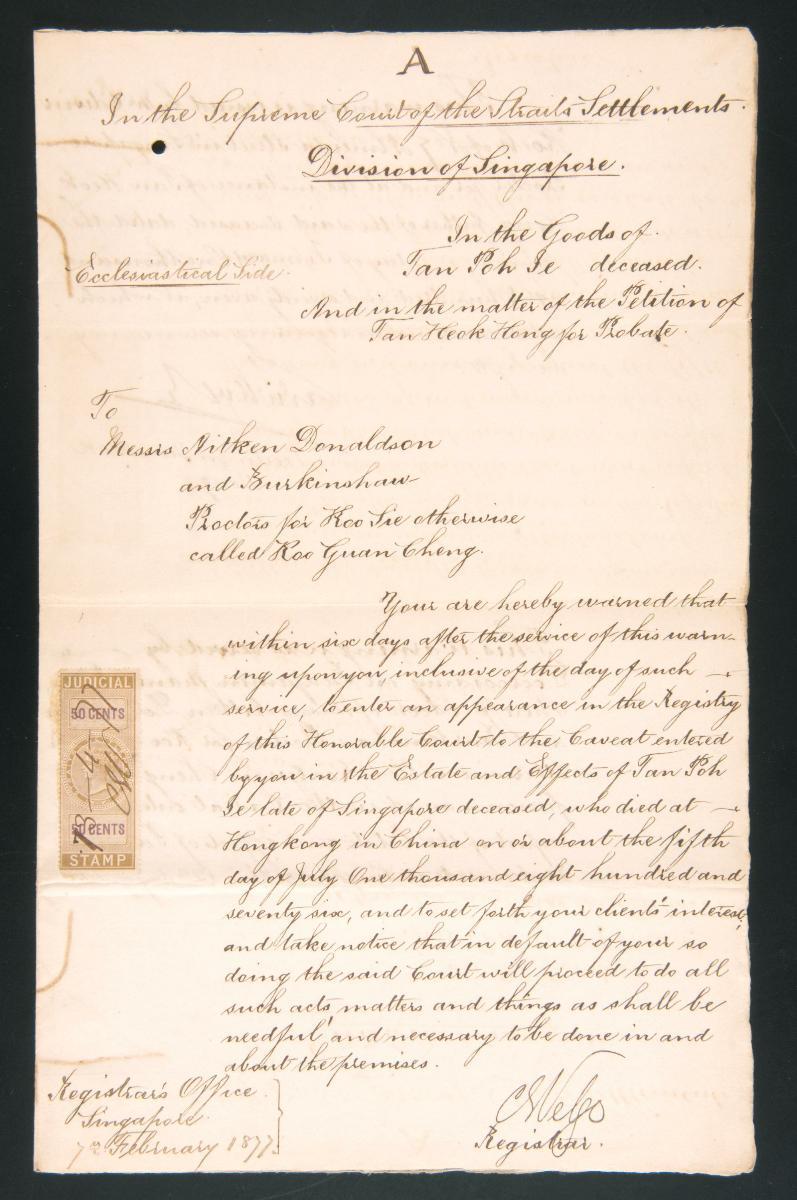 A
In the Supreme Court of the Straits Settlements.
Division of Singapore.
In the Goods of.
Tan Poh Ie deceased.
Ecclesiastical Side.
And in the matter of the Petition of
Tan Heok Hong for Probate.
To
Messrs Aitken Donaldson
and Burkinshaw
Proctors for Koo Sie otherwise
called Koo Guan Cheng.
Your are hereby warned that
within six days after the service of this warn-
ing upon you, inclusive of the day of such
service, to enter an appearance in the Registry
of this Honorable Court to the Caveat entered
by you in the Estate and Effects of Tan Poh
Ie late of Singapore deceased, who died at
Hongkong in China on or about the fifth
day of July One thousand eight hundred and
seventy six, and to set forth your clients' interest,
and take notice that in default of your so
doing the said Court will proceed to do all
such acts, matters and things as shall be
needful, and necessary to be done in and
about the premises.
JUDICIAL
50 CENTS
50 CENTS
STAMP
Registrar's Office.
Singapore.
7th February 1877.
Registrar.